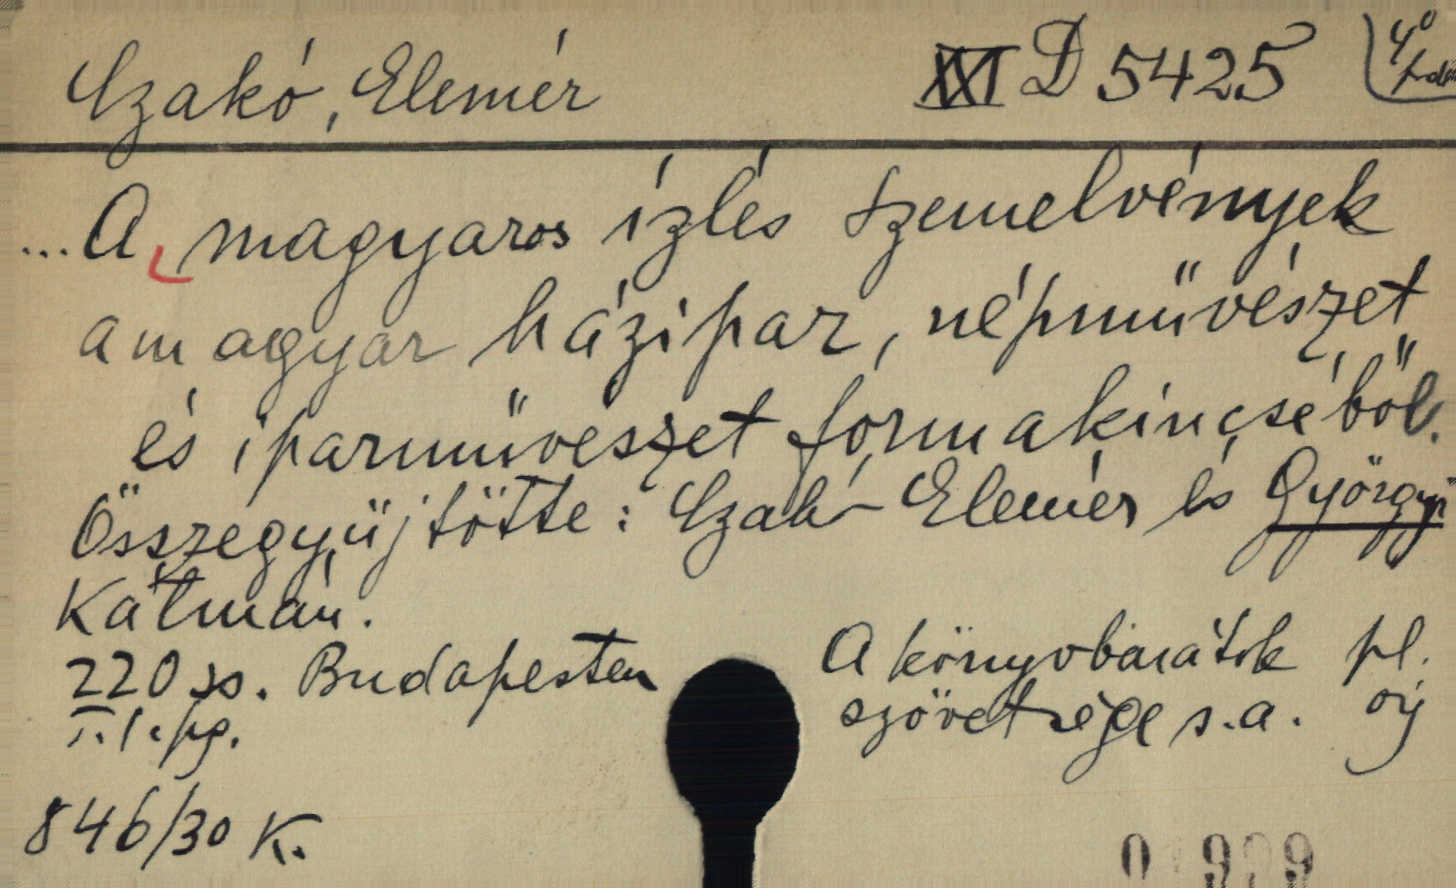 Szakó, Elemér XXI D 5425 4°
... A magyaros ízlés szemelvények
a magyar háziipar, népművészet
és iparművészet formakincséből.
Összegyüjtötte: Szakó Elemér és Györgyi
Kálmán.
220 ss. Budapesten A könyvbarátok pl.
szövetsége s.a.
846/30 K.